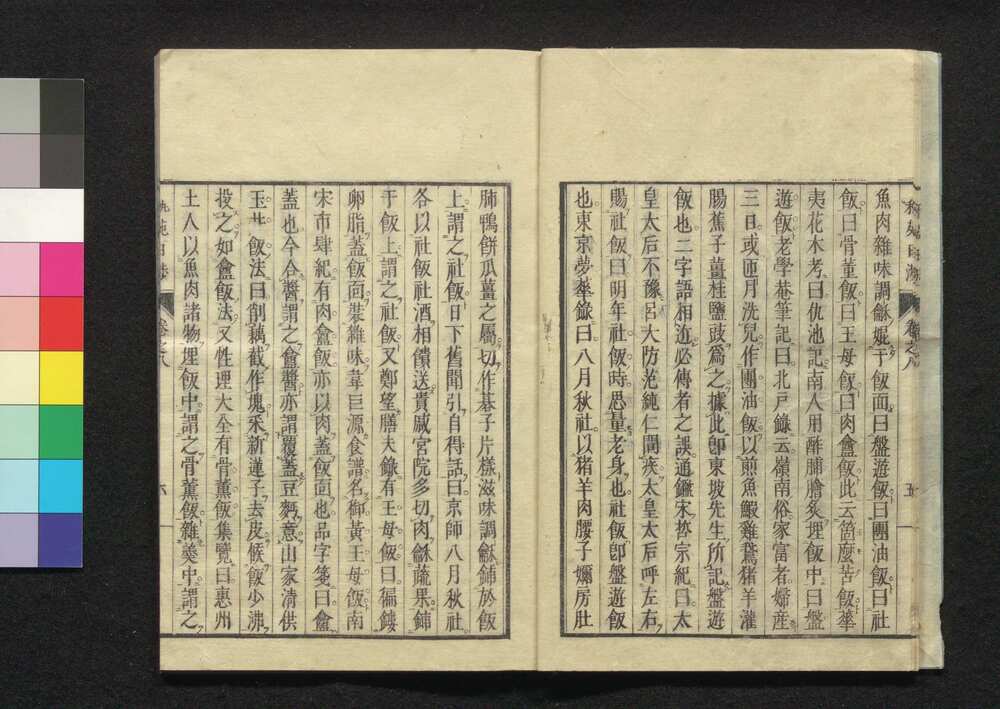 魚肉雜味調龢娓于飯面曰盤遊飯曰團油飯曰社
飯曰骨董飯曰王母飯曰肉盦飯此云箇麼苦飯華
夷花木考曰仇池記南人用酢脯膾炙埋飯中曰盤
遊飯老學菴筆記曰北戸錄云嶺南俗家富者婦産
三日或匝月洗兒作團油飯以煎魚鰕雞鵞猪羊灌
腸蕉子薑桂鹽豉爲之據此卽東坡先生所記盤遊
飯也二字語相近必傳者之誤通鑑宋哲宗紀曰太
皇太后不豫呂大防范純仁問疾太皇太后呼左右
賜社飯曰明年社飯時思量老身也社飯卽盤遊飯
也東京夢華錄曰八月秋社以猪羊肉腰子嬭房肚
肺鴨餅瓜薑之屬切作碁子片樣滋味調龢鋪於飯
上謂之社飯日下舊聞引自得話曰京師八月秋社
各以社飯社酒相饋送貴戚宮院多切肉龢蔬果鋪
于飯上謂之社飯又鄭望膳夫錄有王母飯曰徧鏤
卵脂蓋飯面裝雜味韋巨源食譜名御黃王母飯南
宋市肆紀有肉盦飯亦以肉蓋飯面也品字箋曰盦
蓋也今合醬謂之盦醬亦謂覆蓋豆麪意山家清供
玉井飯法曰削藕截作塊采新蓮子去皮候飯少沸
投之如盦飯法又性理大全有骨薰飯集覽曰惠州
土人以魚肉諸物埋飯中謂之骨薰飯雜羹中謂之
卷之八
五
六